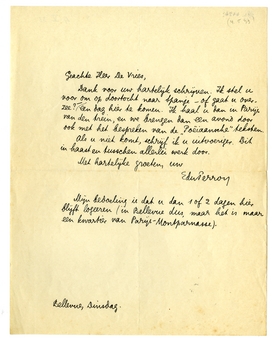 Geachte Heer De Vries,
Dank voor uw hartelijk schrijven. Ik stel u
voor om op doortocht naar Spanje - of gaat u over-
zee? - een dag hier te komen. Ik haal u dan in Parijs
van den trein, en we brengen dan een avond door
ook met het bespreken van de
Als u niet komt, schrijf ik u uitvoeriger. Dit
in haast en tusschen allerlei werk door.
Met hartelijke groeten, uw
EduPerron
Mijn bedoeling is dat u dan 1 of 2 dagen hier
blijft logeeren (in Bellevue dus, maar het is maar
een kwartier van Parijs-Montparnasse).
Bellevue, Dinsdag.